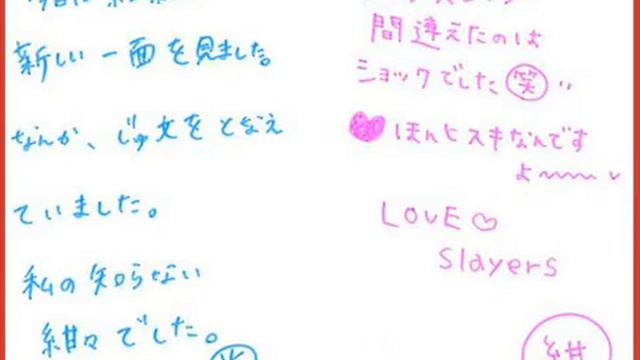 新しい一面を見ました。
なんか、じゅ文をとなえ
ていました。
私の知らない
紺々でした。
間違えたのは
ショックでした 笑
ほんとスキなんです
よ〜〜〜
LOVE♡
Slayers
紺